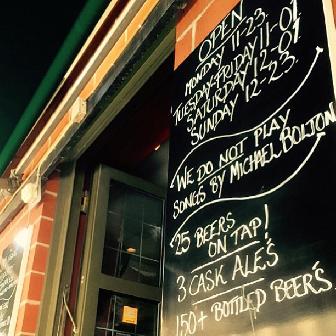 OPEN
MONDAY 11-23.
TUESDAY-FRIDAY 11-01
SATURDAY 12-01
SUNDAY 12-23.
WE DO NOT PLAY
SONGS BY MICHAEL BOLTON
25 BEERS
ON TAP!
3 CASK ALE'S
150+ BOTTLED BEER'S